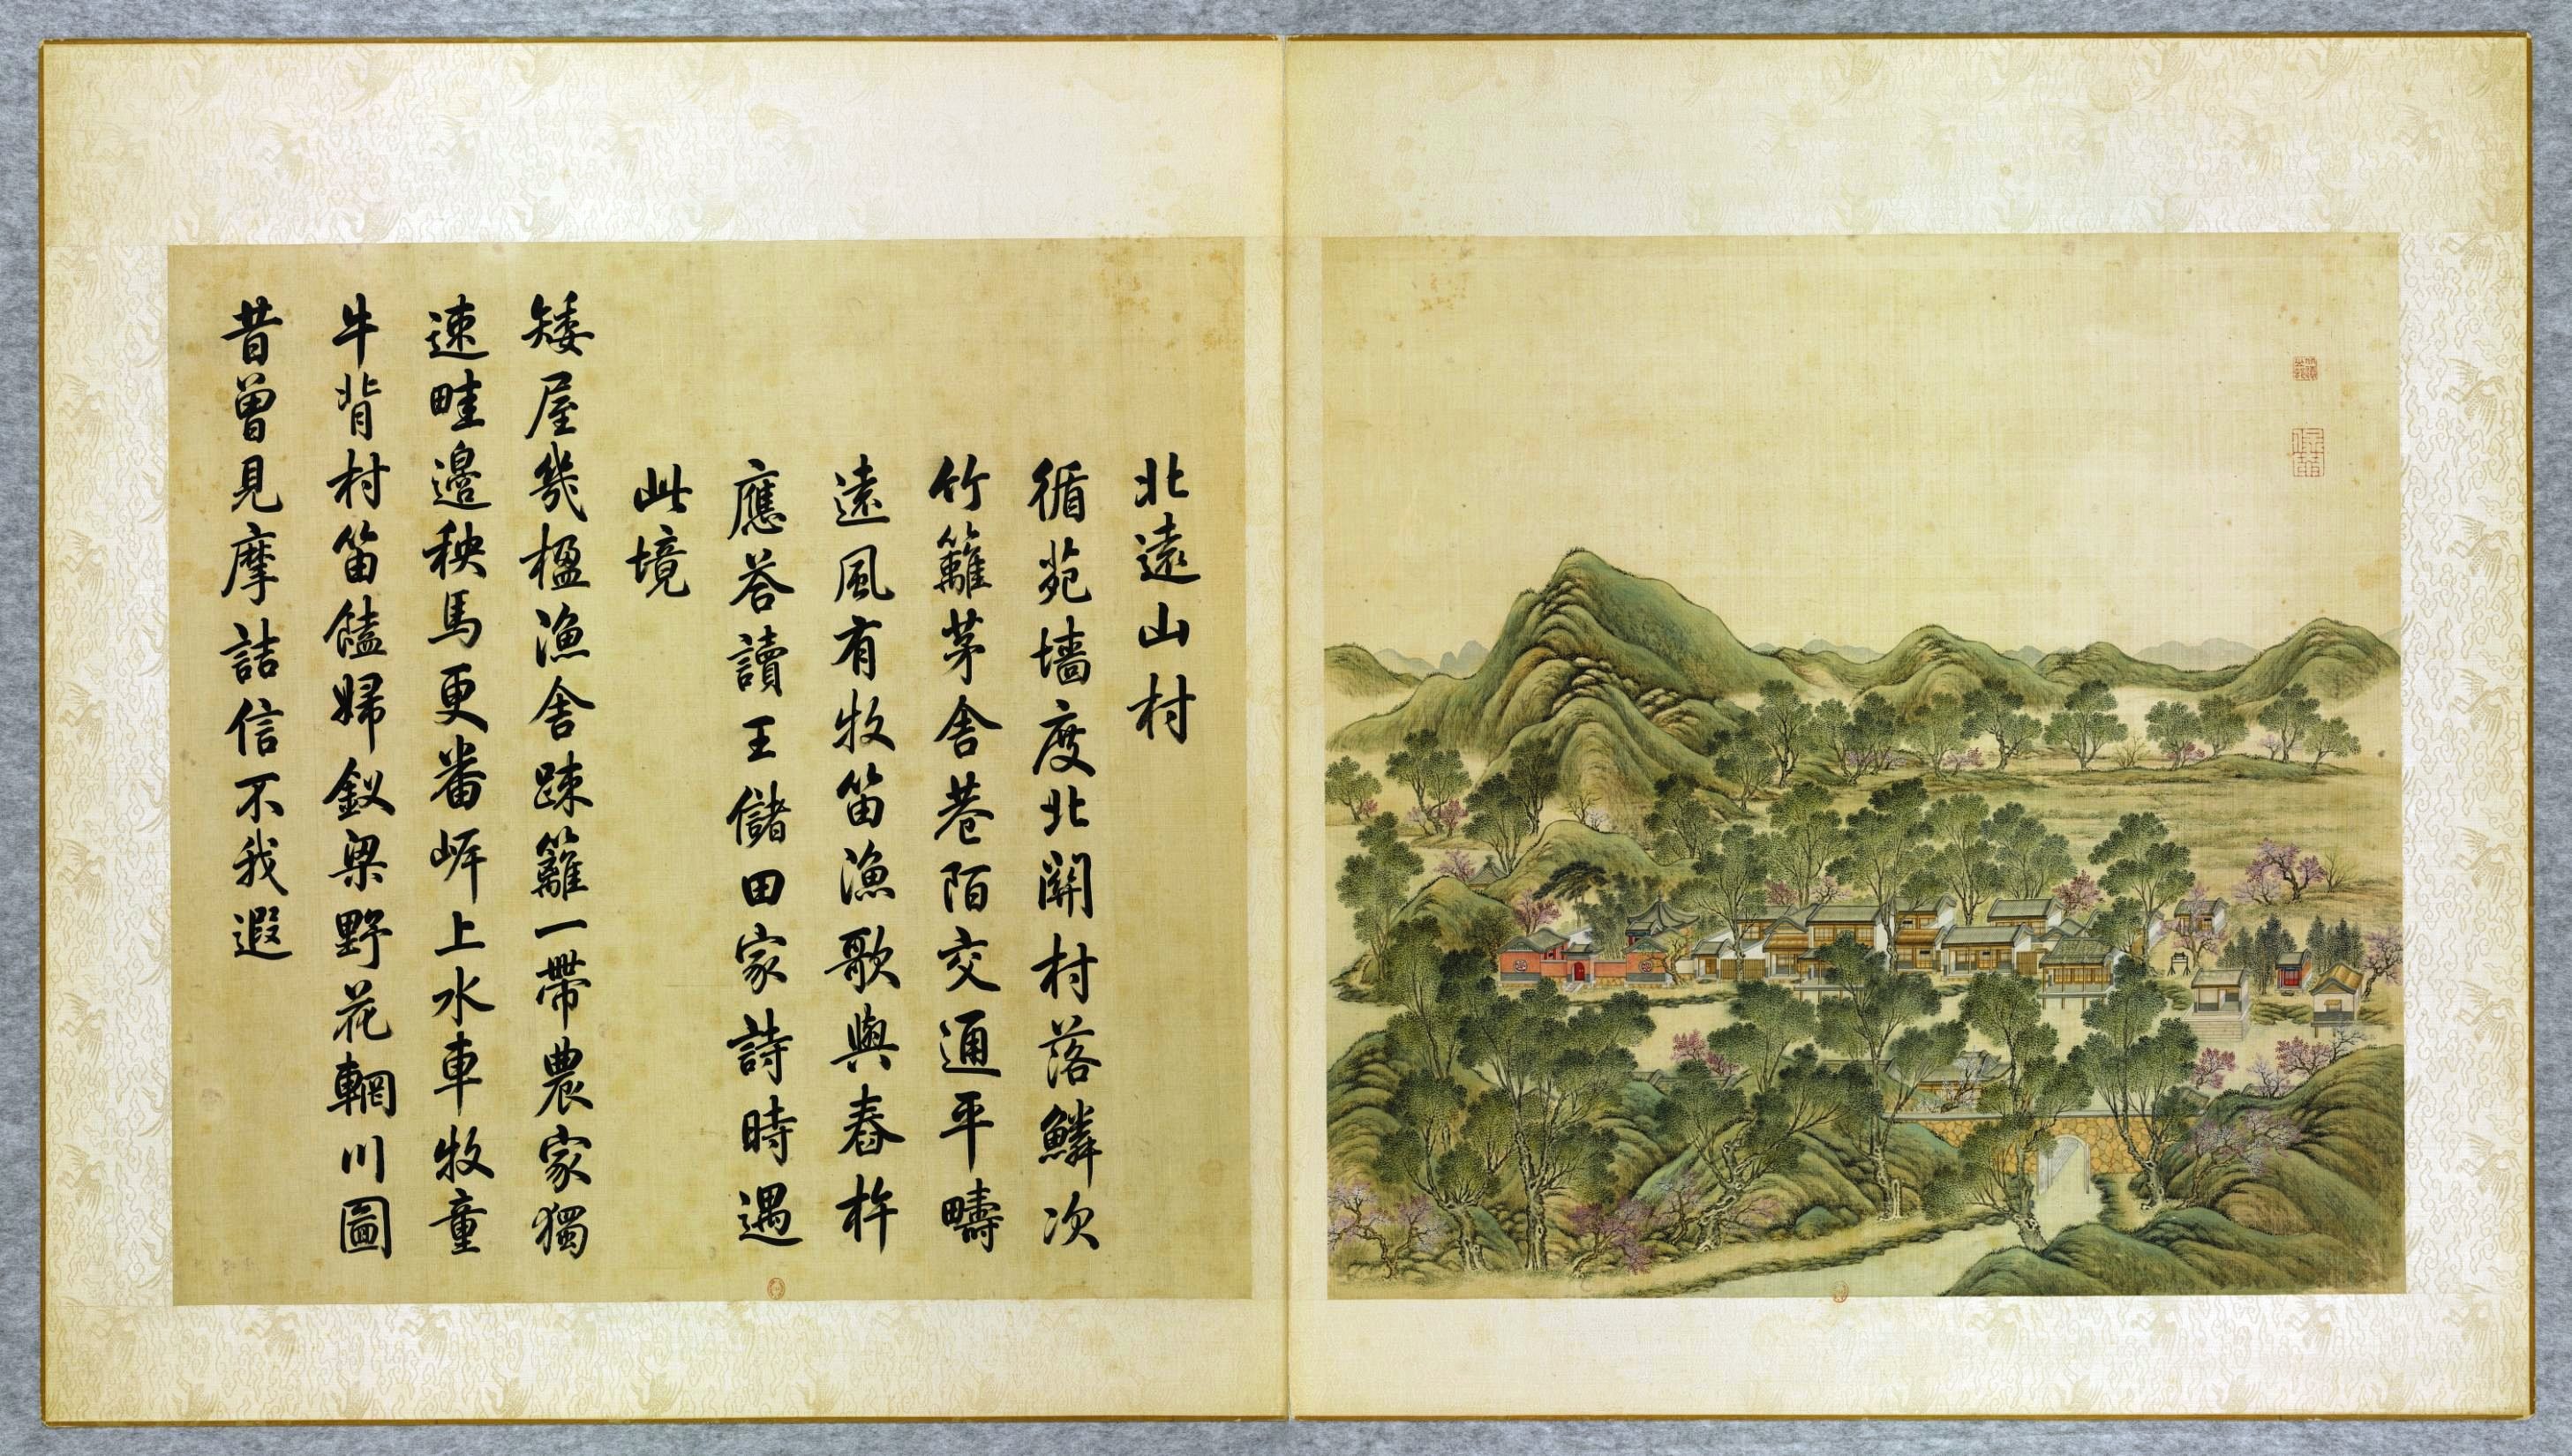 北遠山村
循苑墻度北關村落鱗次
竹籬茅舍巷陌交通平疇
遠風有牧笛漁歌與舂杵
應荅讀王儲田家詩時遇
此境
矮屋幾楹漁舍踈籬一帶農家獨
速畦邊秧馬更番岸上水車牧童
牛背村笛饁婦釵梁野花輞川圖
昔曾見摩詰信不我遐